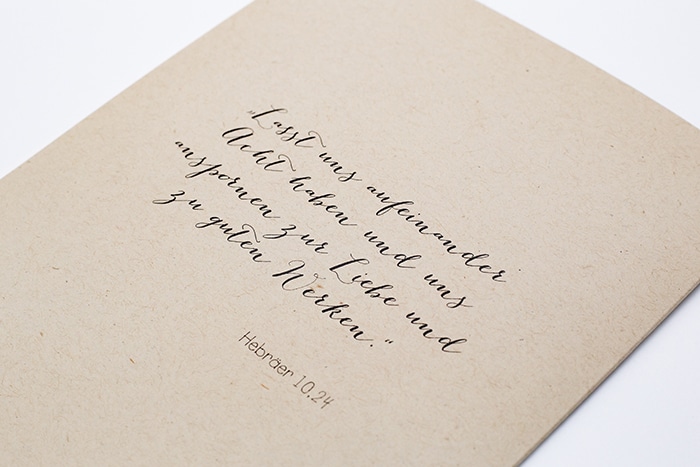 „Lasst uns aufeinander
Acht haben und uns
anspornen zur Liebe und
zu guten Werken."
Hebräer 10,24